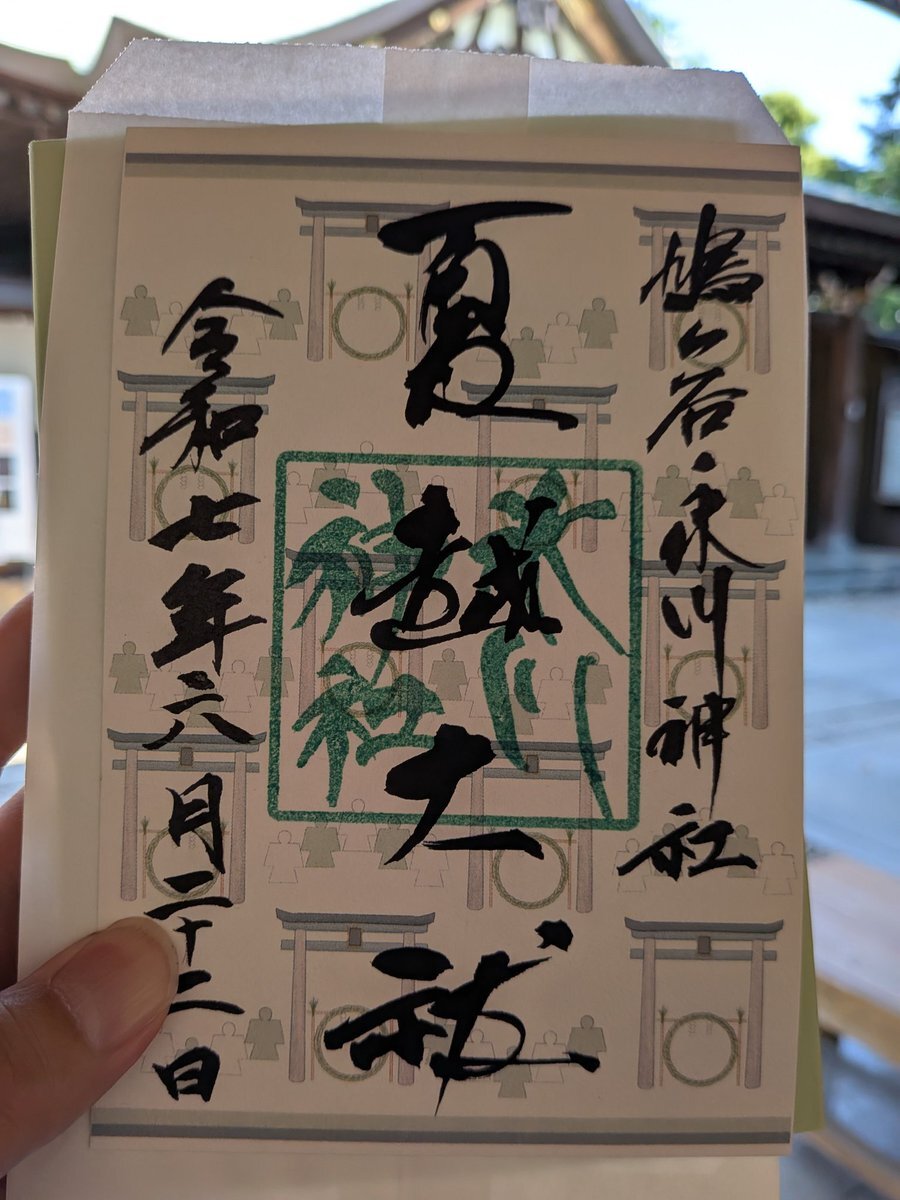 鳩ヶ谷氷川神社
夏越大祓
氷川
神社
令和七年六月二十二日